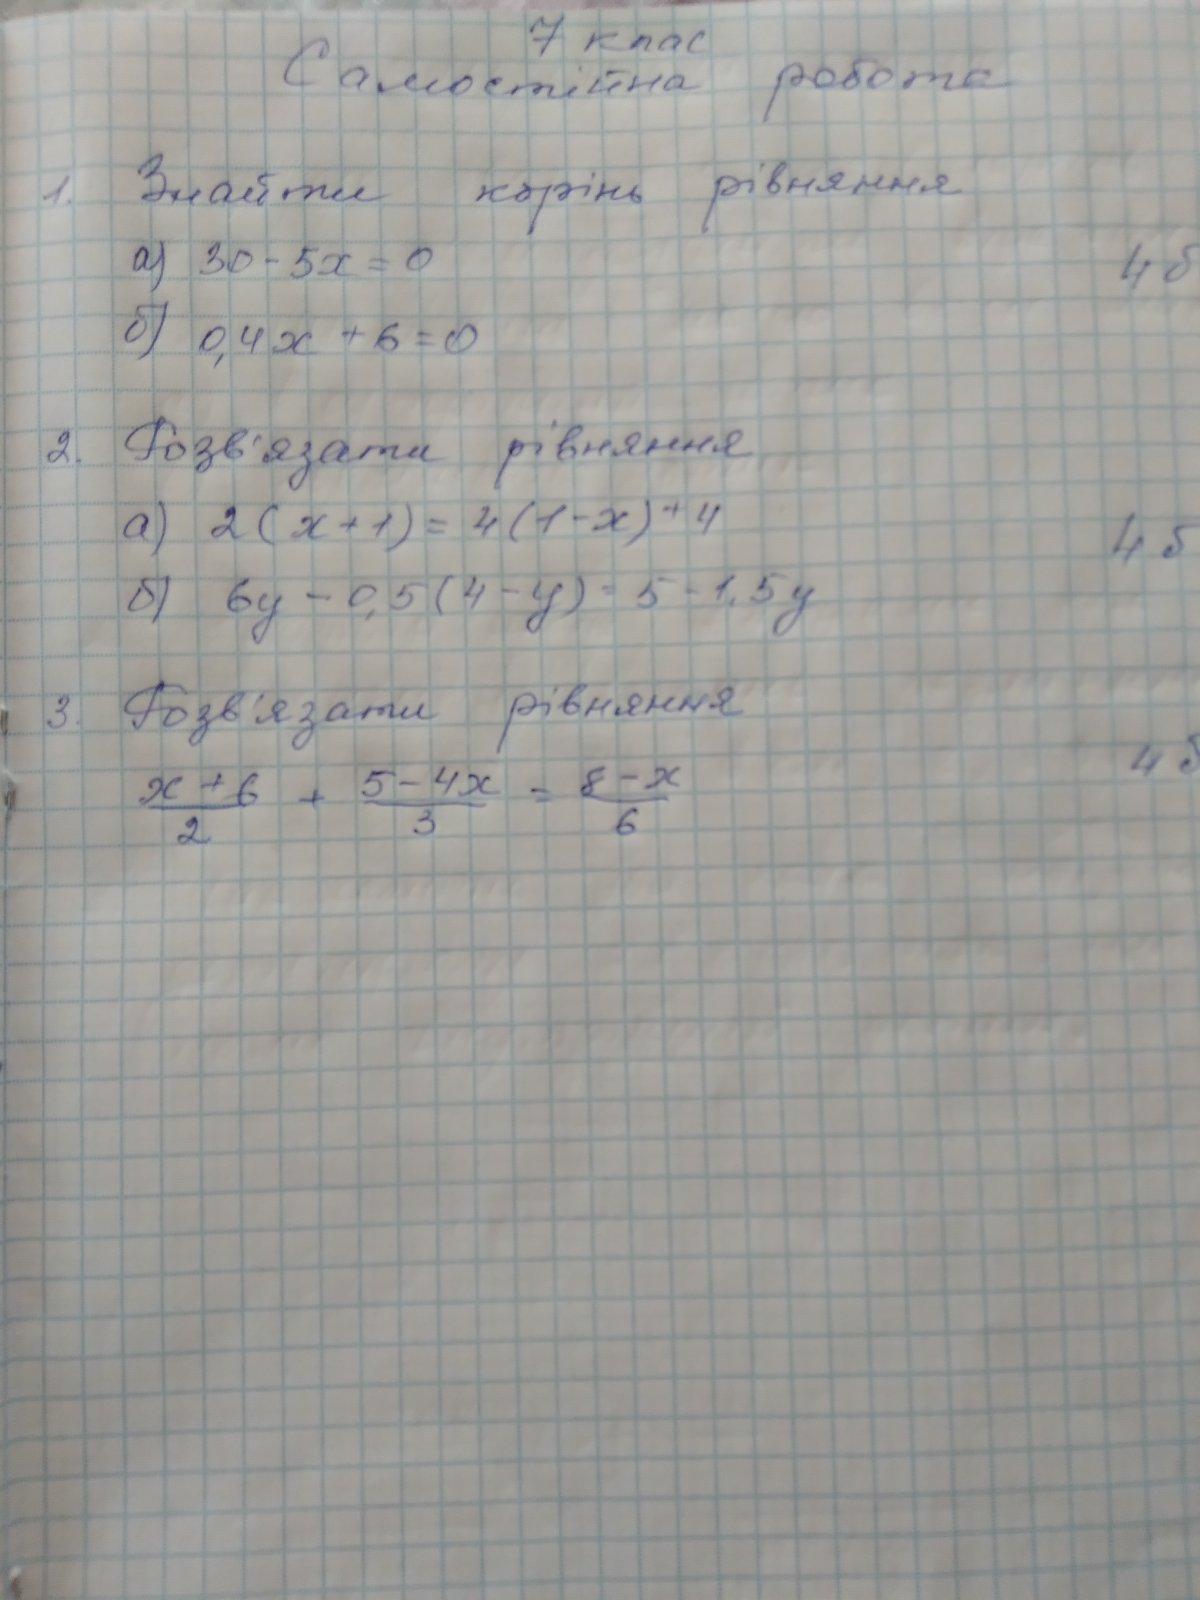 7 клас
Самостійна робота
1. Знайти корінь рівняння
а) 30 - 5x = 0
4 б
б) 0,4x + 6 = 0
2. Розв'язати рівняння
а) 2(x + 1) = 4(1 - x) + 4
4 б
б) 6y - 0,5(4 - y) = 5 - 1,5y
3. Розв'язати рівняння
4 б
x + 6 / 2 + 5 - 4x / 3 = 8 - x / 6